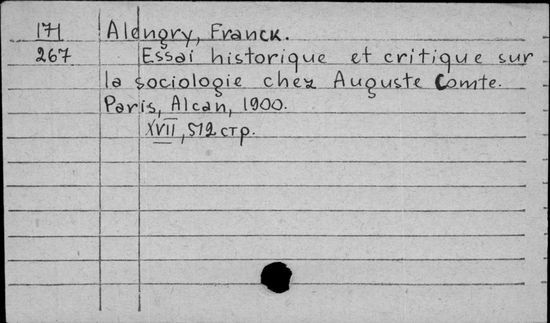 171 Alengry, Franck.
267 Essai historique et critique sur
la sociologie chez Auguste Comte.
Paris, Alcan, 1900.
XVII, 512 стр.